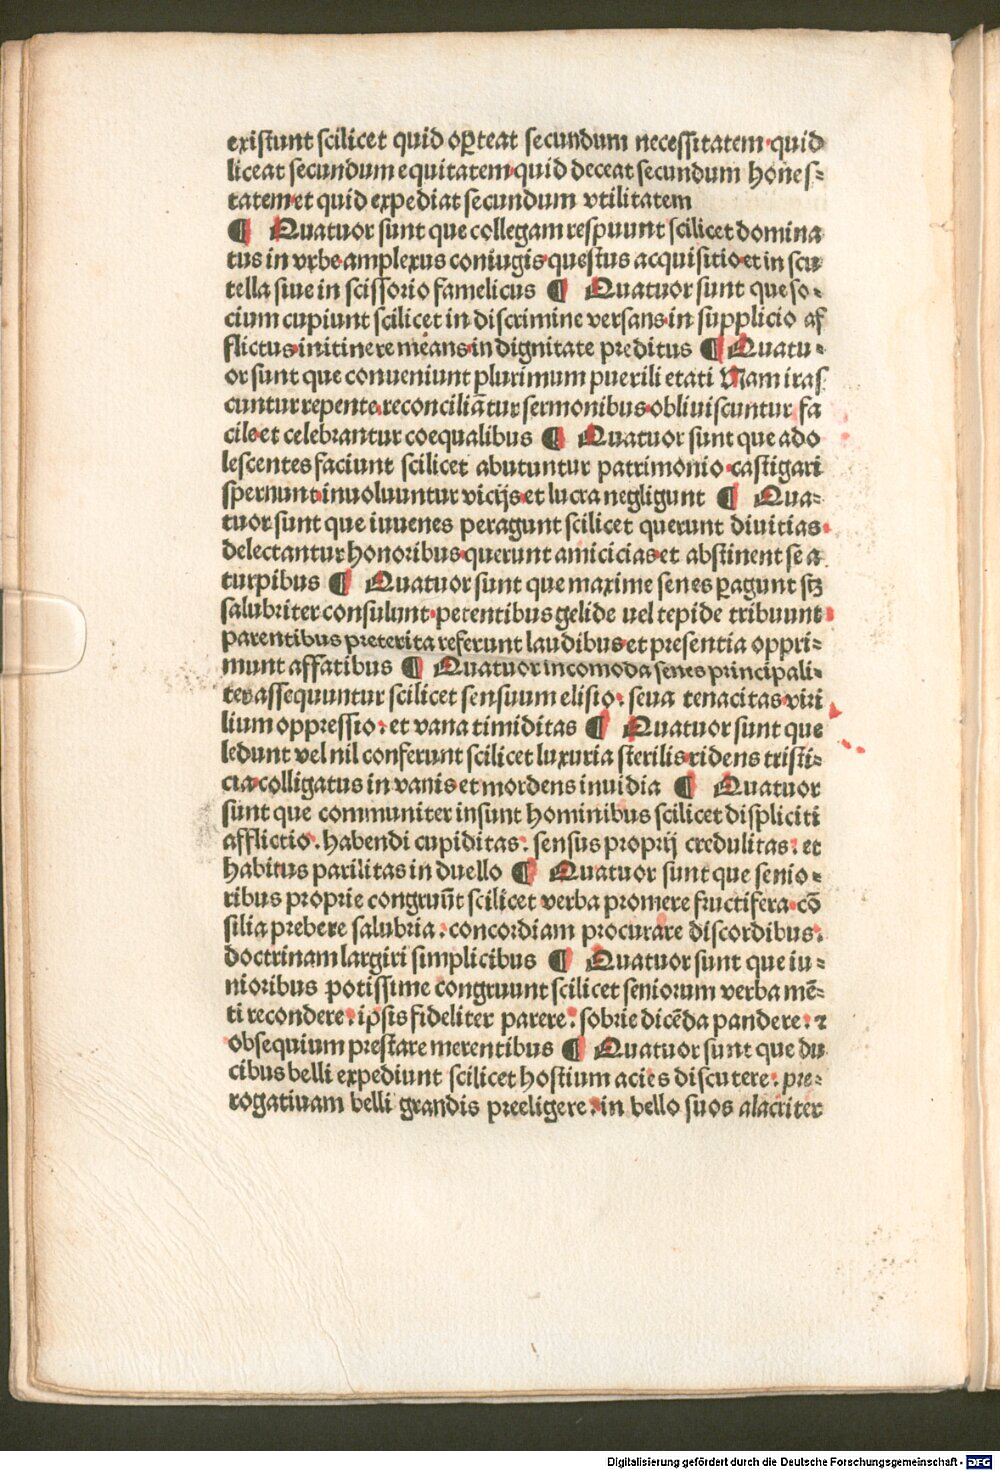 existunt scilicet quid oꝑteat secundum necessitatem·quid
liceat secundum equitatem·quid deceat secundum hones⸗
tatem·et quid expediat secundum vtilitatem
¶ Quatuor sunt que collegam respuunt scilicet domina
tus in vrbe·amplexus coniugis·questus acquisitio·et in scu
tella siue in scissorio famelicus ¶ Quatuor sunt que so⸗
cium cupiunt scilicet in discrimine versans·in supplicio af
flictus·in itinere means·in dignitate preditus ¶ Quatu⸗
or sunt que conueniunt plurimum puerili etati Nam iras
cuntur repente·reconciliātur sermonibus·obliuiscuntur fa
cile·et celebrantur coequalibus ¶ Quatuor sunt que ado
lescentes faciunt scilicet abutuntur patrimonio·castigari
spernunt·inuoluuntur vicijs·et lucra negligunt ¶ Qua⸗
tuor sunt que iuuenes peragunt scilicet querunt diuitias·
delectantur honoribus·querunt amicicias·et abstinent se a
turpibus ¶ Quatuor sunt que maxime senes ꝑagunt sꝫ
salubriter consulunt·petentibus gelide uel tepide tribuunt·
parentibus preterita referunt laudibus·et presentia oppri⸗
munt affatibus ¶ Quatuor incomoda senes principali⸗
ter assequuntur scilicet sensuum elisio·seua tenacitas·viri
lium oppressio·et vana timiditas ¶ Quatuor sunt que
ledunt vel nil conferunt scilicet luxuria sterilis·ridens tristi⸗
cia·colligatus in vanis·et mordens inuidia ¶ Quatuor
sunt que communiter insunt hominibus scilicet displiciti
afflictio·habendi cupiditas·sensus proprij credulitas·et
habitus parilitas in duello ¶ Quatuor sunt que senio⸗
ribus proprie congruūt scilicet verba promere fructifera·cō
silia prebere salubria·concordiam procurare discordibus·
doctrinam largiri simplicibus ¶ Quatuor sunt que iu⸗
nioribus potissime congruunt scilicet seniorum verba mē⸗
ti recondere·ipsis fideliter parere·sobrie dicēda pandere·⁊
obsequium prestare merentibus ¶ Quatuor sunt que du
cibus belli expediunt scilicet hostium acies discutere·pre⸗
rogatiuam belli grandis preeligere·in bello suos alacriter
Digitalisierung gefördert durch die Deutsche Forschungsgemeinschaft - DFG